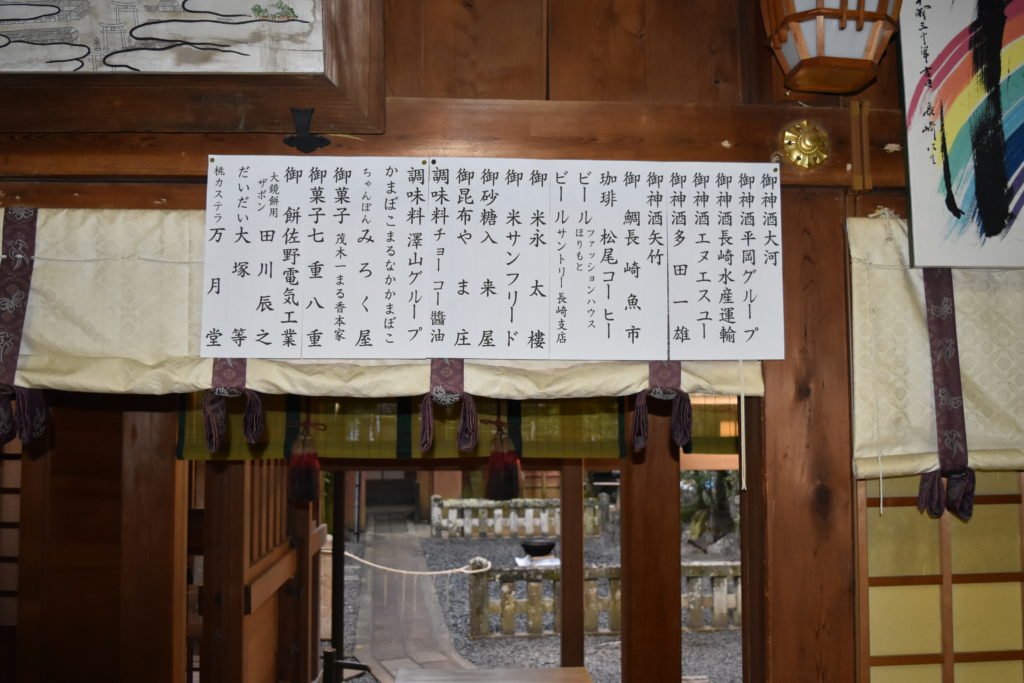 御神酒大河
御神酒平岡グループ
御神酒長崎水産運輸
御神酒エヌエスユー
御神酒多田一雄
御神酒矢竹
御鯛長崎魚市
珈琲 松尾コーヒー
ビールファッションハウスほりもと
ビールサントリー長崎支店
御米永太樓
御米サンフリード
御砂糖入来屋
御昆布やま庄
調味料チョーコー醬油
調味料澤山グループ
かまぼこまるなかかまぼこ
ちゃんぽんみろく屋
御菓子茂木一まる香本家
御菓子七重八重
御餅佐野電気工業
大鏡餅用ザボン田川辰之
だいだい大塚等
桃カステラ万月堂